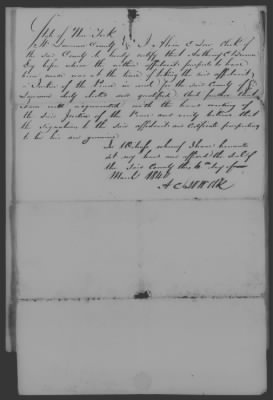 State of New York
St Lawrence County SS I Alvin C Low Clerk of
the said County do hereby certify that Anthony C Brown
Esq before whom the within affidavit purports to have
been made was at the time of taking the said affidavit
a Justice of the Peace in and for the said County of St
Lawrence duly elected and qualified that further that
I am well acquainted with the hand writing of
the said Justice of the Peace and verily believe that
the signature to the said affidavit and certificate purporting
to be his are genuine
In Witness whereof I have hereunto
set my hand and affixed the seal of
the said County this 6th day of
March 1840